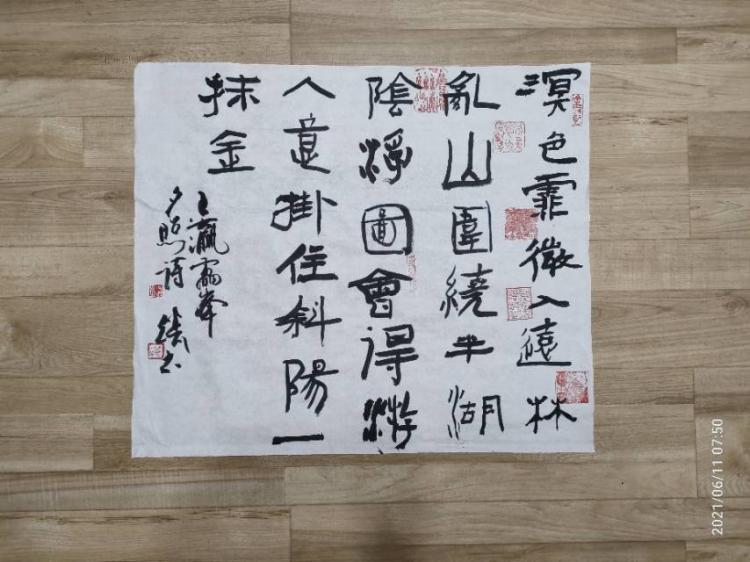 溟色霏微入遠林
亂山圍繞半湖
陰浮圖會得游
人意掛住斜陽一
抹金
王瀛雷峯
夕照詩
2021/06/11 07:50